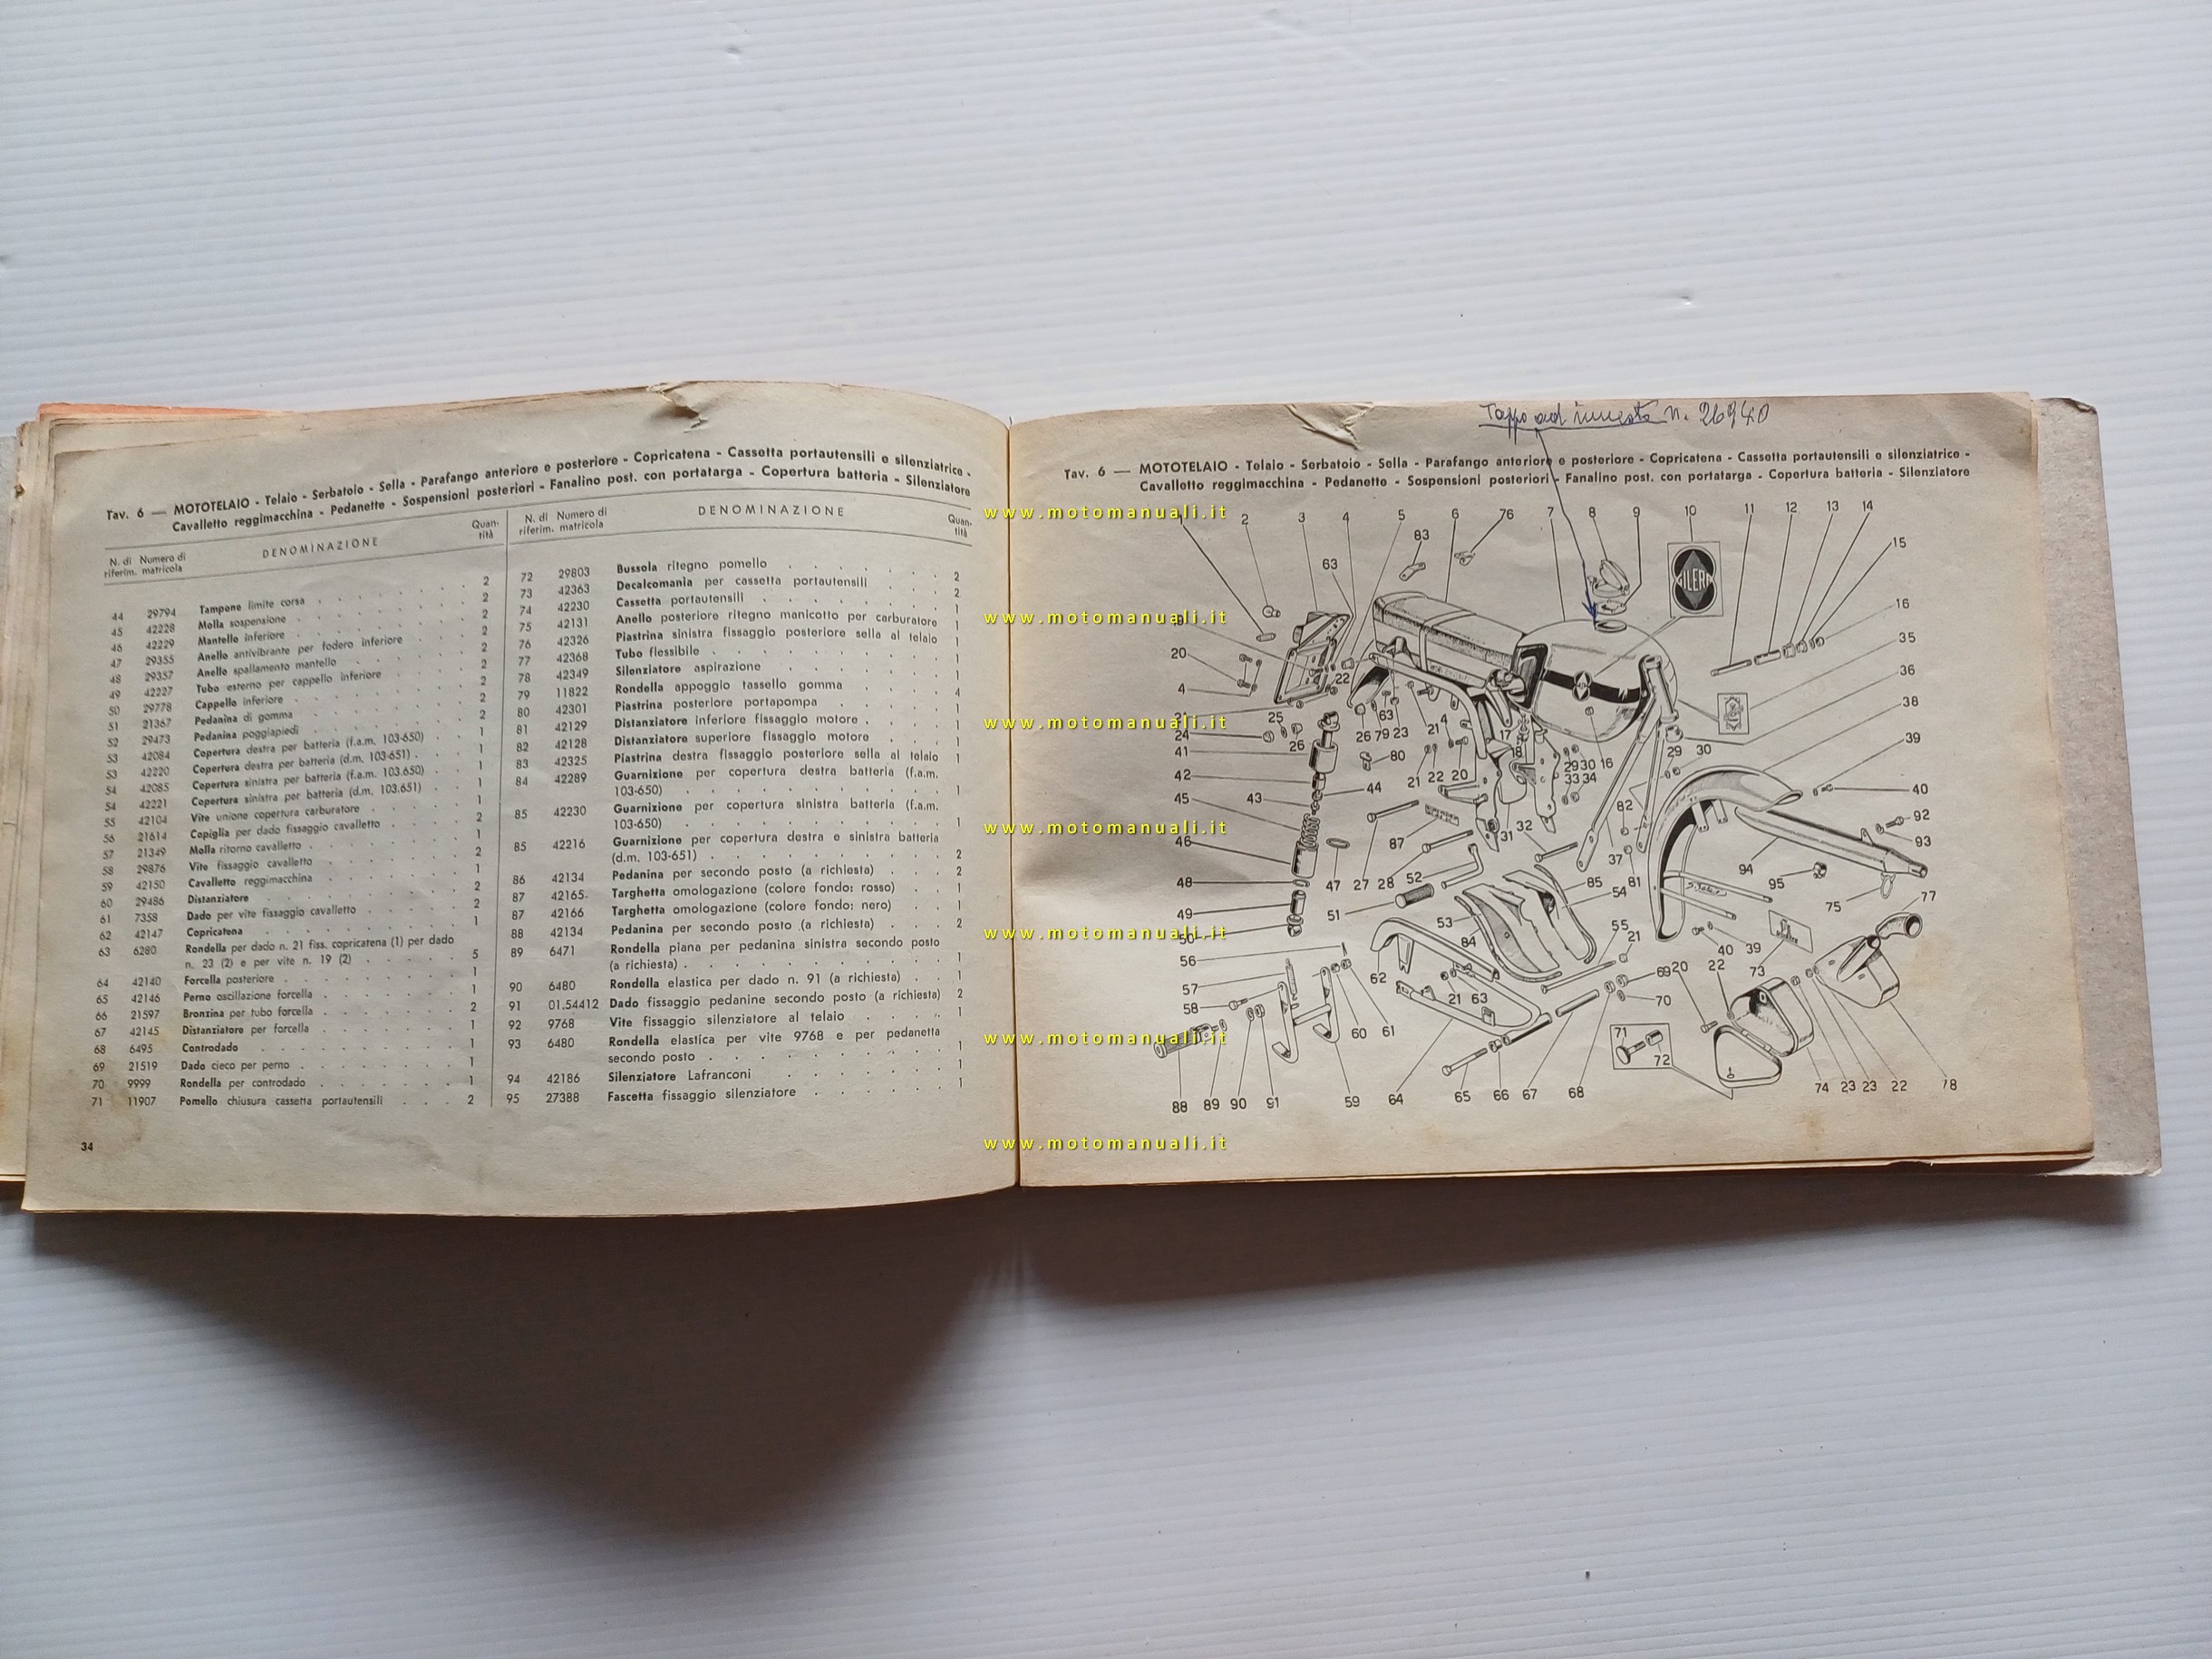 Tav. 6 — MOTOTELAIO - Telaio - Serbatoio - Sella - Parafango anteriore e posteriore - Copricatena - Cassetta portautensili e silenziatrice -
Cavalletto reggimacchina - Pedanette - Sospensioni posteriori - Fanalino post. con portatarga - Copertura batteria - Silenziatore
N. di riferim. Numero di matricola DENOMINAZIONE Quantità
44 29794 Tampone limite corsa 2
45 42228 Molla sospensione 2
46 42229 Mantello inferiore 2
47 29355 Anello antivibrante per fodero inferiore 2
48 29357 Anello spallamento mantello 2
49 42227 Tubo esterno per cappello inferiore 2
50 29778 Cappello inferiore 2
51 21367 Pedanina di gomma 2
52 29473 Pedanina poggiapiedi 2
53 42084 Copertura destra per batteria (f.a.m. 103-650) 1
53 42220 Copertura destra per batteria (d.m. 103-651) 1
54 42085 Copertura sinistra per batteria (f.a.m. 103.650) 1
54 42221 Copertura sinistra per batteria (d.m. 103.651) 1
55 42104 Vite unione copertura carburatore 1
56 21614 Copiglia per dado fissaggio cavalletto 2
57 21349 Molla ritorno cavalletto 1
58 29876 Vite fissaggio cavalletto 2
59 42150 Cavalletto reggimacchina 1
60 29486 Distanziatore 2
61 7358 Dado per vite fissaggio cavalletto 2
62 42147 Copricatena 1
63 6280 Rondella per dado n. 21 fiss. copricatena (1) per dado
n. 23 (2) e per vite n. 19 (2) 5
64 42140 Forcella posteriore 1
65 42146 Perno oscillazione forcella 1
66 21597 Bronzina per tubo forcella 2
67 42145 Distanziatore per forcella 1
68 6495 Controdado 1
69 21519 Dado cieco per perno 1
70 9999 Rondella per controdado 1
71 11907 Pomello chiusura cassetta portautensili 2
34
N. di riferim. Numero di matricola DENOMINAZIONE Quantità
72 29803 Bussola ritegno pomello 2
73 42363 Decalcomania per cassetta portautensili 2
74 42230 Cassetta portautensili 1
75 42131 Anello posteriore ritegno manicotto per carburatore 1
76 42326 Piastrina sinistra fissaggio posteriore sella al telaio 1
77 42368 Tubo flessibile 1
78 42349 Silenziatore aspirazione 1
79 11822 Rondella appoggio tassello gomma 4
80 42301 Piastrina posteriore portapompa 1
81 42129 Distanziatore inferiore fissaggio motore 1
82 42128 Distanziatore superiore fissaggio motore 1
83 42325 Piastrina destra fissaggio posteriore sella al telaio 1
84 42289 Guarnizione per copertura destra batteria (f.a.m.
103-650) 1
85 42230 Guarnizione per copertura sinistra batteria (f.a.m.
103-650) 1
85 42216 Guarnizione per copertura destra e sinistra batteria
(d.m. 103-651) 2
86 42134 Pedanina per secondo posto (a richiesta) 2
87 42165 Targhetta omologazione (colore fondo: rosso) 1
87 42166 Targhetta omologazione (colore fondo: nero) 1
88 42134 Pedanina per secondo posto (a richiesta) 2
89 6471 Rondella piana per pedanina sinistra secondo posto
(a richiesta) 1
90 6480 Rondella elastica per dado n. 91 (a richiesta) 1
91 01.54412 Dado fissaggio pedanine secondo posto (a richiesta) 2
92 9768 Vite fissaggio silenziatore al telaio 1
93 6480 Rondella elastica per vite 9768 e per pedanetta
secondo posto 1
94 42186 Silenziatore Lafranconi 1
95 27388 Fascetta fissaggio silenziatore 1
Tappo ad innesto n. 26940
Tav. 6 — MOTOTELAIO - Telaio - Serbatoio - Sella - Parafango anteriore e posteriore - Copricatena - Cassetta portautensili e silenziatrice -
Cavalletto reggimacchina - Pedanette - Sospensioni posteriori - Fanalino post. con portatarga - Copertura batteria - Silenziatore
www.motomanuali.it
1 2 3 4 5 6 76 7 8 9 10 11 12 13 14
83
15
63
GILERA
16
www.motomanuali.it
35
20
22
36
4
38
25 63 21 4
www.motomanuali.it
24 26 26 79 23 17 39
41 18 29 30
80
42 21 22 20 29 30 16
44 33 34 40
45 43 82
92
www.motomanuali.it
46 87 31 32 93
37 94
48 47 27 28 52 85 81 95
51 54 77
49 53 75
50
www.motomanuali.it
84 55 21 40 39
56 62 22 73
57 69 20
58 21 63 70
60 61
www.motomanuali.it
71
72
88 89 90 91 59 64 65 66 67 68 74 23 23 22 78
www.motomanuali.it